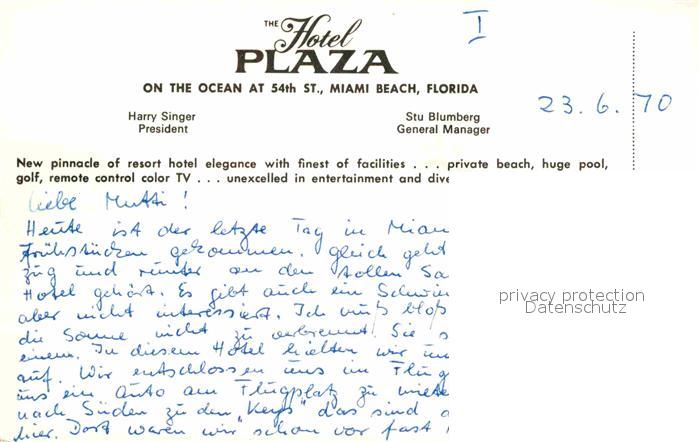 THE Hotel
PLAZA
I
ON THE OCEAN AT 54th ST., MIAMI BEACH, FLORIDA
23.6.70
Harry Singer Stu Blumberg
President General Manager
New pinnacle of resort hotel elegance with finest of facilities . . . private beach, huge pool,
golf, remote control color TV . . . unexcelled in entertainment and dive
Liebe Mutti!
Heute ist der letzte Tag in Miam
Frühstücken gekommen. Gleich geht
zug und runter an den tollen Sa
Hotel gehört. Es gibt auch ein Schwim
aber nicht interessiert. Ich muß bloß
die Sonne nicht zu verbrennt! Sie s
einem. In diesem Hotel hielten wir uns
auf. Wir entschlossen uns im Flug
uns ein Auto am Flugplatz zu miete
nach Süden zu den "Keys" das sind
hier. Dort waren wir schon vor fast
privacy protection
Datenschutz